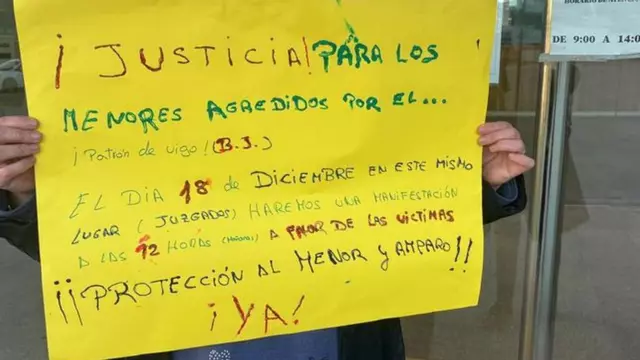 ¡JUSTICIA! PARA LOS
MENORES AGREDIDOS POR EL...
¡Patrón de vigo! (B.J.)
EL DÍA 18 de DICIEMBRE EN ESTE MISMO
LUGAR (JUZGADOS) HAREMOS UNA MANIFESTACIÓN
A LAS 12 HORAS A FAVOR DE LAS VÍCTIMAS
¡¡PROTECCIÓN AL MENOR Y AMPARO!!
¡YA!
DE 9:00 A 14:0